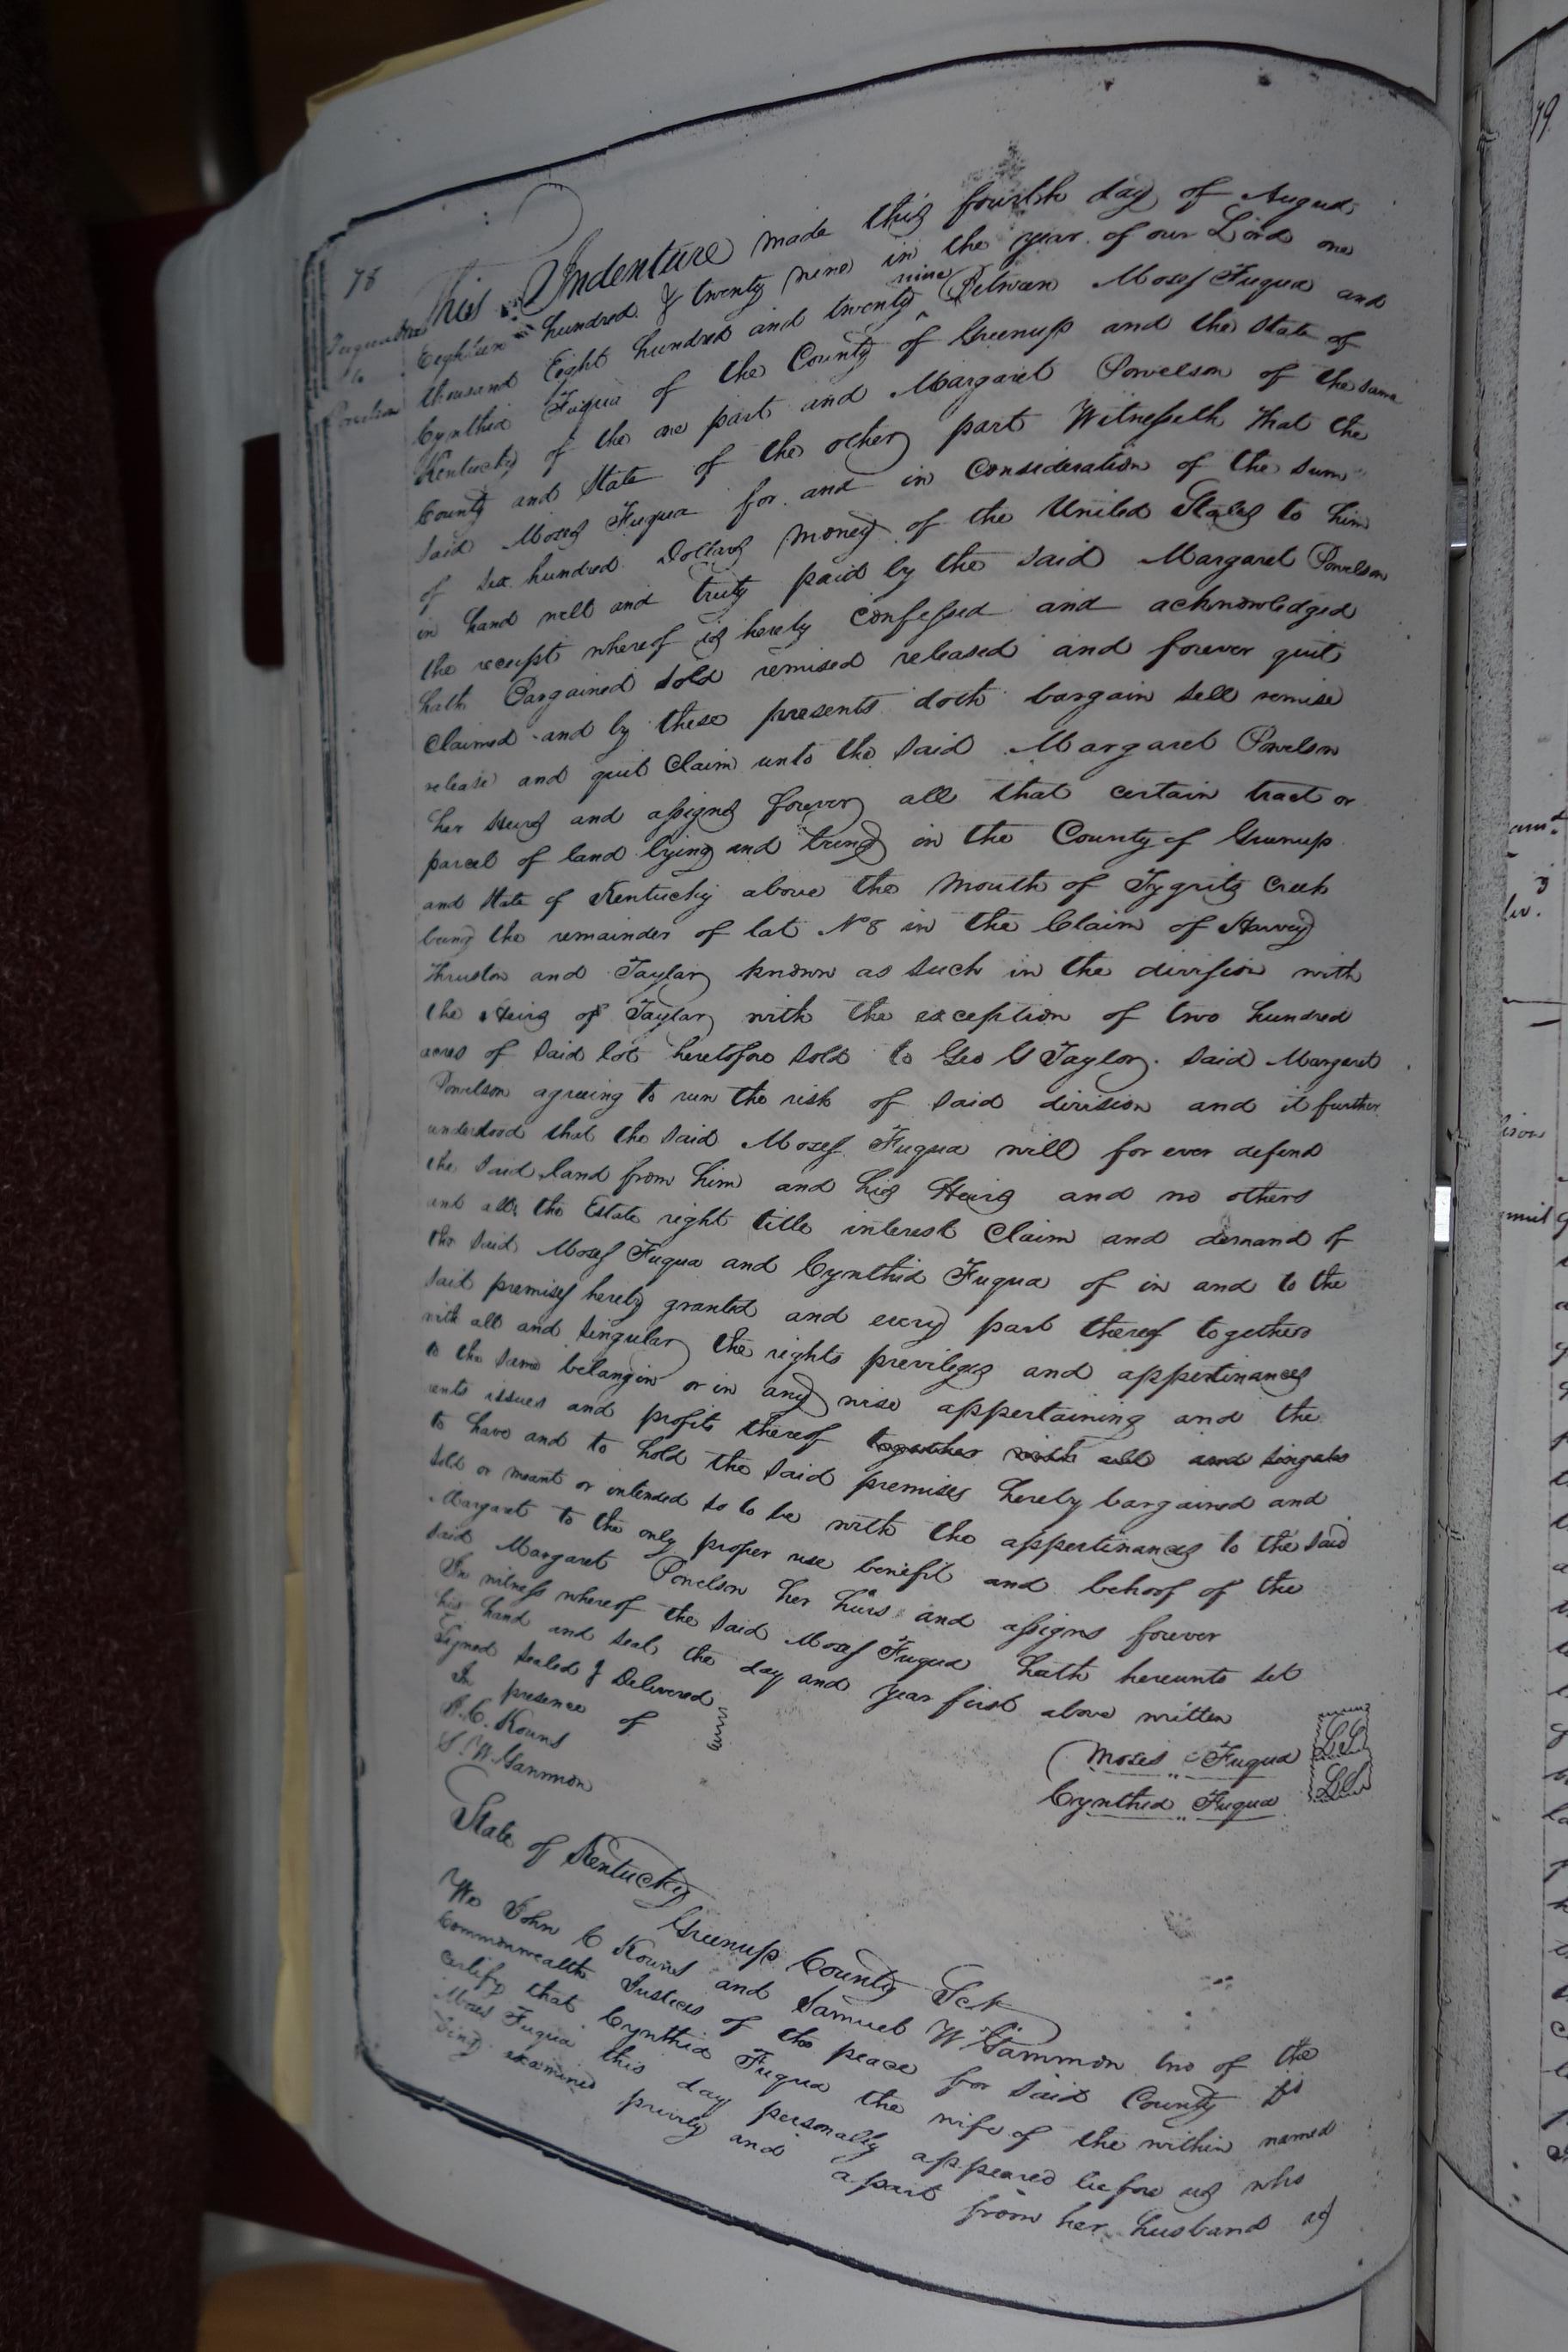 78
This Indenture made this fourth day of August
Eighteen hundred & twenty nine in the year of our Lord one
thousand Eight hundred and twenty nine Between Moses Fuqua and
Cynthia Fuqua of the County of Greenup and the State of
Kentucky of the one part and Margaret Powelson of the same
County and State of the other part Witnesseth that the
said Moses Fuqua for and in Consideration of the sum
of six hundred Dollars money of the United States to him
in hand well and truly paid by the said Margaret Powelson
the receipt whereof is hereby confessed and acknowledged
hath Bargained sold remised released and forever quit
claimed and by these presents doth bargain sell remise
release and quit Claim unto the said Margaret Powelson
her Heirs and assigns forever all that certain tract or
parcel of land lying and being in the County of Greenup
and State of Kentucky above the mouth of Tygrits Creek
being the remainder of lot No 8 in the Claim of Harvey
Thruston and Taylor known as such in the division with
the Heirs of Taylor with the exception of two hundred
acres of said lot heretofore sold to Geo G Taylor. said Margaret
Powelson agreeing to run the risk of said division and it further
understood that the said Moses Fuqua will for ever defend
the said land from him and his Heirs and no others
and all the Estate right title interest Claim and demand of
the said Moses Fuqua and Cynthia Fuqua of in and to the
said premises hereby granted and every part thereof together
with all and singular the rights previleges and appertinances
to the same belongin or in any wise appertaining and the
rents issues and profits thereof together with all and singular
to have and to hold the said premises hereby bargained and
sold or meant or intended so to be with the appertinances to the said
Margaret to the only proper use benefit and behoof of the
said Margaret Powelson her heirs and assigns forever
In witness whereof the said Moses Fuqua hath hereunto set
his hand and seal the day and year first above written
Signed Sealed & Delivered
In presence of
J. C. Kouns
S. W. Gammon
Moses Fuqua LS
Cynthia Fuqua LS
State of Kentucky
Greenup County Sct
We John C Kouns and Samuel W Gammon two of the
Commonwealths Justices of the peace for said County do
certify that Cynthia Fuqua the wife of the within named
Moses Fuqua this day personally appeared before us who
being examined privily and apart from her husband